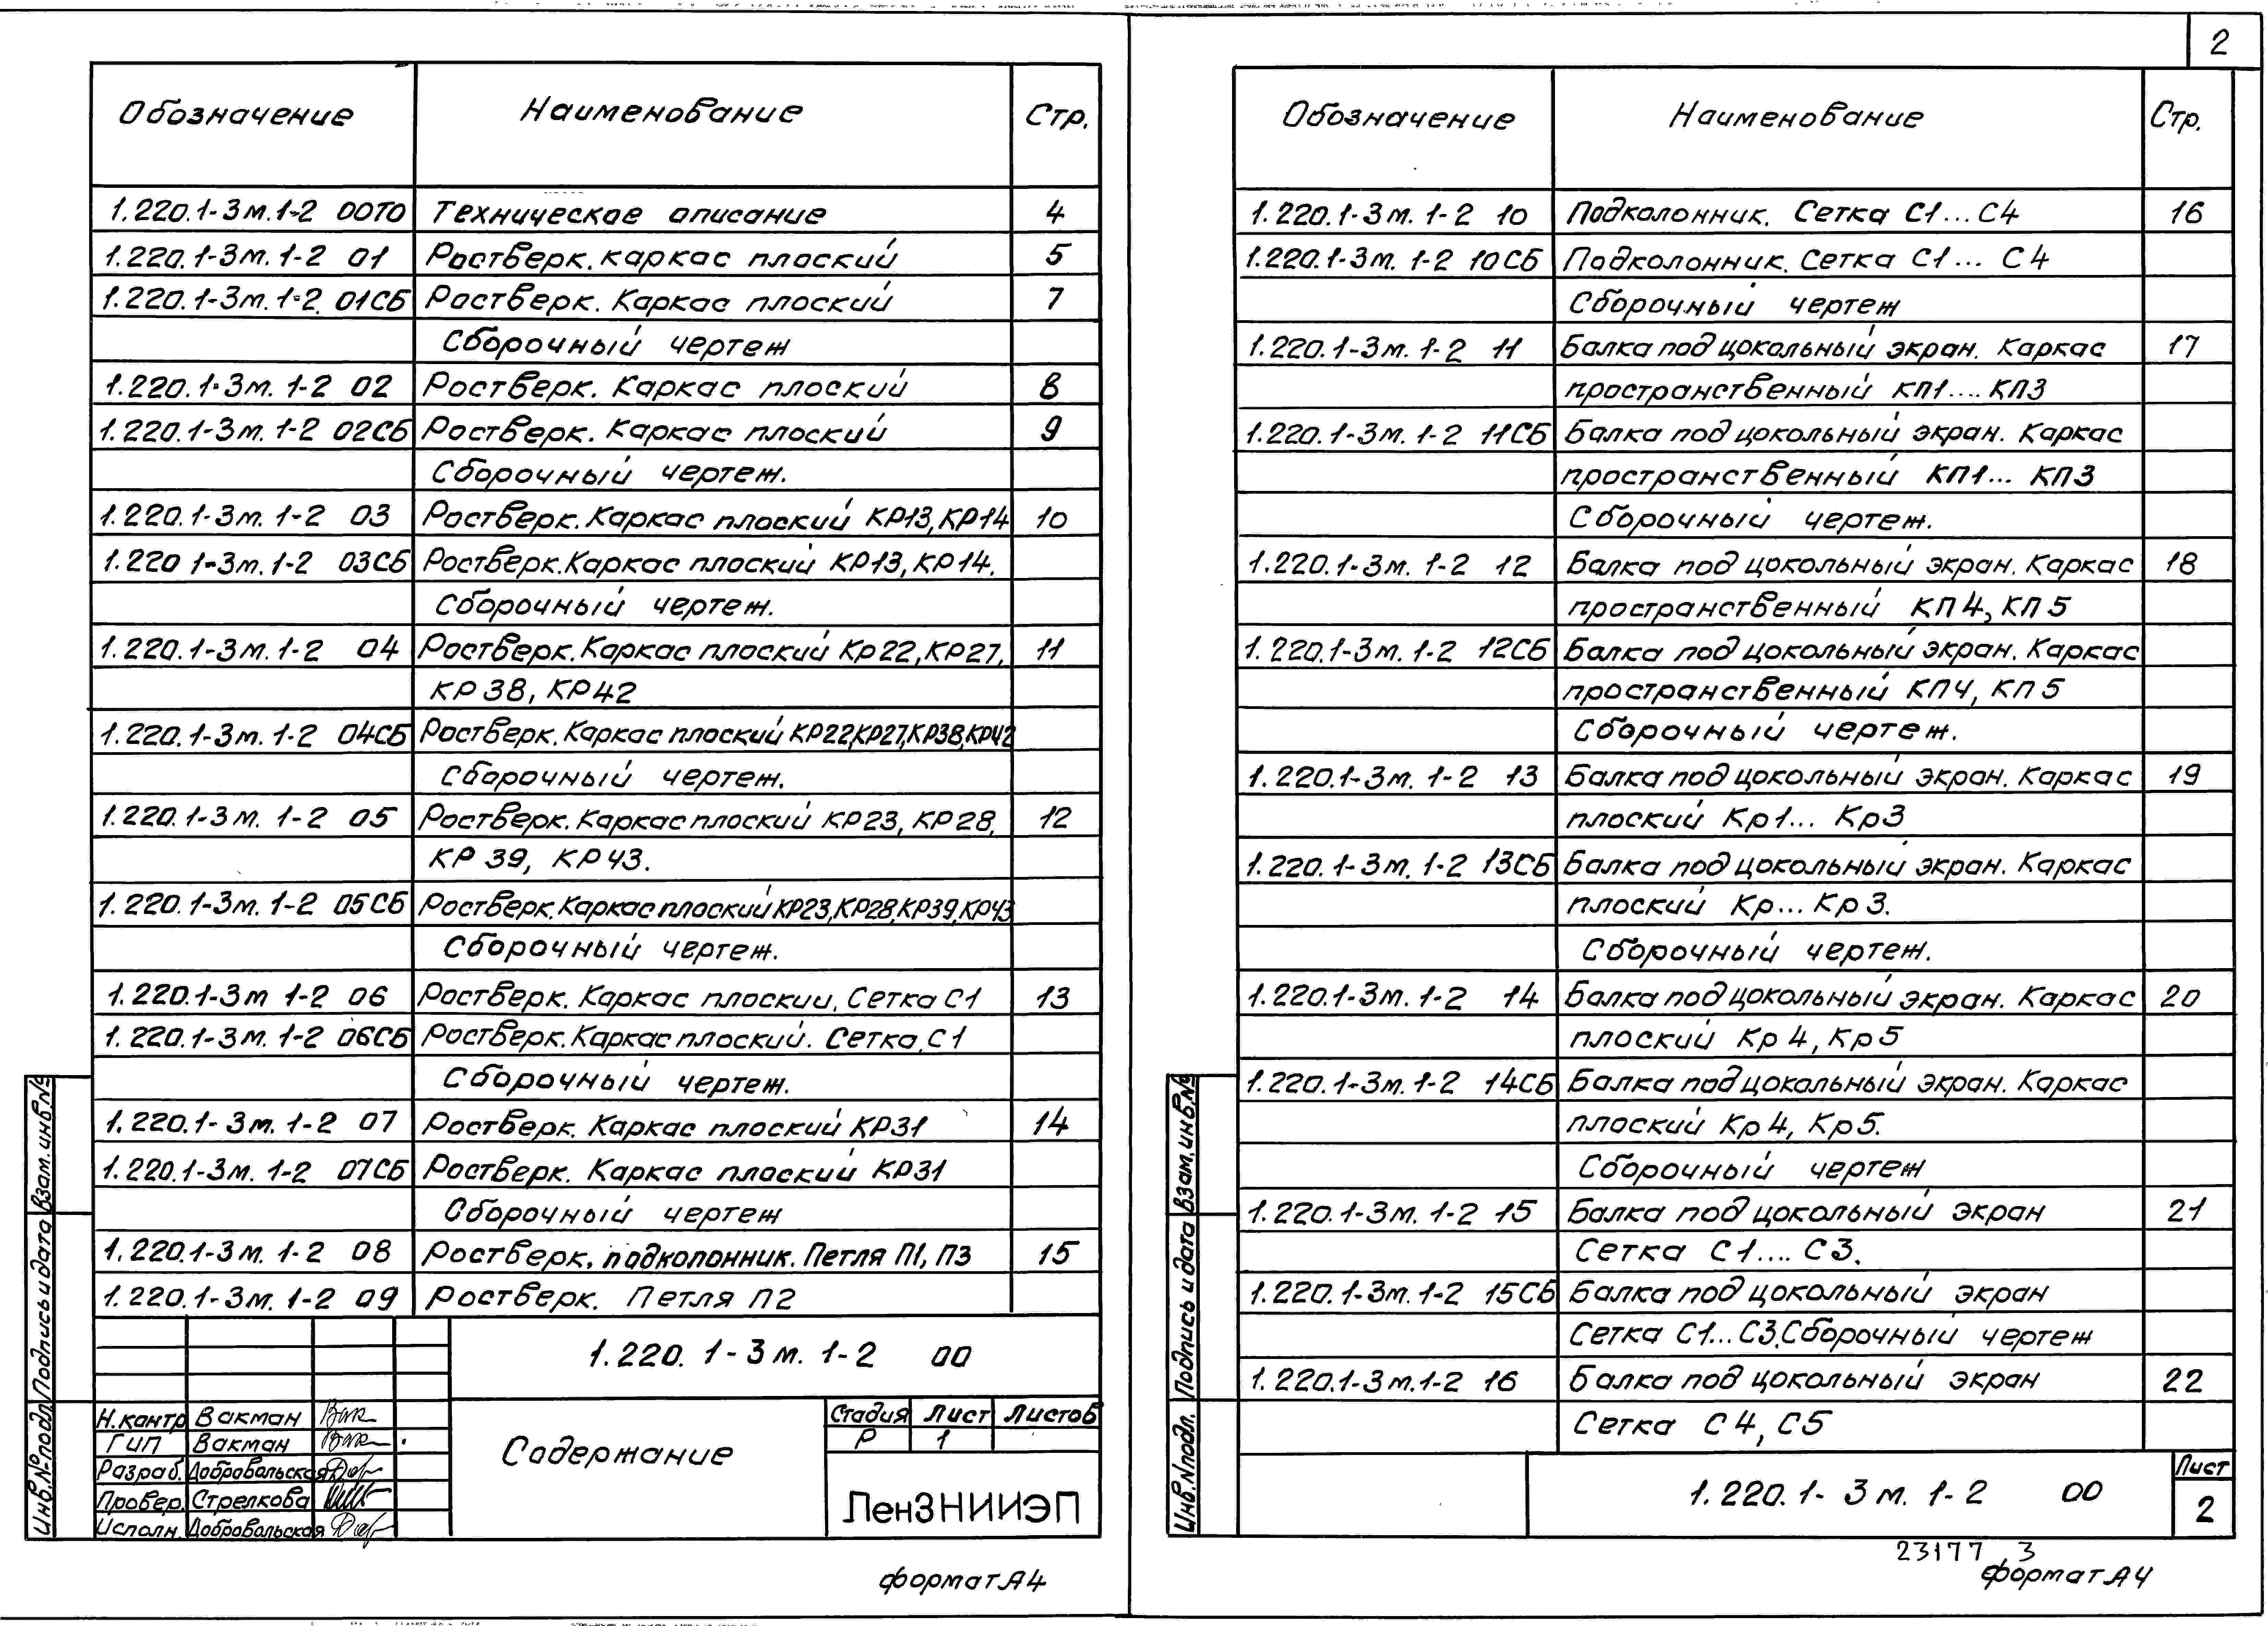 Обозначение Наименование Стр.
1.220.1-3м.1-2 00ТО Техническое описание 4
1.220.1-3м.1-2 01 Ростверк. каркас плоский 5
1.220.1-3м.1-2. 01СБ Ростверк. Каркас плоский 7
Сборочный чертеж
1.220.1-3м.1-2 02 Ростверк. Каркас плоский 8
1.220.1-3м.1-2 02СБ Ростверк. Каркас плоский 9
Сборочный чертеж.
1.220.1-3м.1-2 03 Ростверк. Каркас плоский КР13, КР14 10
1.220 1-3м.1-2 03СБ Ростверк. Каркас плоский КР13, КР14.
Сборочный чертеж.
1.220.1-3м.1-2 04 Ростверк. Каркас плоский Кр22, КР27, 11
КР38, КР42
1.220.1-3м.1-2 04СБ Ростверк. Каркас плоский КР22,КР27,КР38,КР42
Сборочный чертеж.
1.220.1-3м. 1-2 05 Ростверк. Каркас плоский КР23, КР28, 12
КР39, КР43.
1.220.1-3м.1-2 05СБ Ростверк. Каркас плоский КР23, КР28, КР39, КР43
Сборочный чертеж.
1.220.1-3м 1-2 06 Ростверк. Каркас плоский. Сетка С1 13
1.220.1-3м.1-2 06СБ Ростверк. Каркас плоский. Сетка С1
Сборочный чертеж.
1.220.1-3м.1-2 07 Ростверк. Каркас плоский КР31 14
1.220.1-3м.1-2 07СБ Ростверк. Каркас плоский КР31
Сборочный чертеж
1.220.1-3м.1-2 08 Ростверк, подколонник. Петля П1, П3 15
1.220.1-3м.1-2 09 Ростверк. Петля П2
1.220.1-3м.1-2 00
Н.контр Вакман
ГИП Вакман
Разраб. Добровольская
Провер. Стрелкова
Исполн. Добровольская
Содержание
Стадия Лист Листов
Р 1
ЛенЗНИИЭП
Инв.№подл Подпись и дата Взам.инв№
формат А4
2
Обозначение Наименование Стр.
1.220.1-3м.1-2 10 Подколонник. Сетка С1...С4 16
1.220.1-3м.1-2 10СБ Подколонник. Сетка С1... С4
Сборочный чертеж
1.220.1-3м.1-2 11 Балка под цокольный экран. Каркас 17
пространственный КП1....КП3
1.220.1-3м.1-2 11СБ Балка под цокольный экран. Каркас
пространственный КП1... КП3
Сборочный чертеж.
1.220.1-3м.1-2 12 Балка под цокольный экран. Каркас 18
пространственный КП4, КП5
1.220.1-3м.1-2 12СБ Балка под цокольный экран. Каркас
пространственный КП4, КП5
Сборочный чертеж.
1.220.1-3м.1-2 13 Балка под цокольный экран. Каркас 19
плоский Кр1... Кр3
1.220.1-3м.1-2 13СБ Балка под цокольный экран. Каркас
плоский Кр...Кр3.
Сборочный чертеж.
1.220.1-3м.1-2 14 Балка под цокольный экран. Каркас 20
плоский Кр4, Кр5
1.220.1-3м.1-2 14СБ Балка под цокольный экран. Каркас
плоский Кр4, Кр5.
Сборочный чертеж
1.220.1-3м.1-2 15 Балка под цокольный экран 21
Сетка С1....С3.
1.220.1-3м.1-2 15СБ Балка под цокольный экран
Сетка С1...С3.Сборочный чертеж
1.220.1-3м.1-2 16 Балка под цокольный экран 22
Сетка С4, С5
1.220.1-3м.1-2 00
Лист
2
Инв.Nподл. Подпись и дата Взам.инв.№
23177 3
формат А4